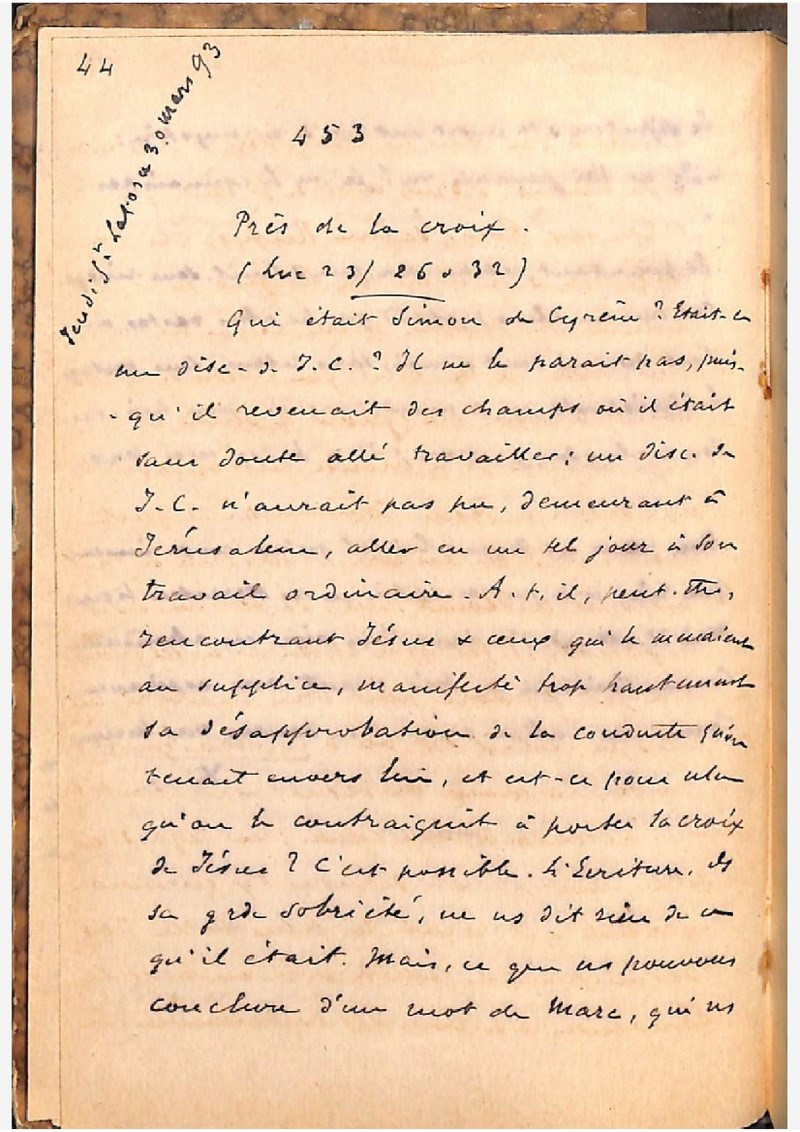 44
Jeudi St Latosa 30 mars 93
453
Près de la croix.
(Luc 23/ 26 à 32)
Qui était Simon de Cyrène ? Etait-ce
un disc. de J.C. ? Il ne le parait pas, puis-
-qu'il revenait des champs où il était
sans doute allé travailler; un disc. de
J.C. n'aurait pas pu, demeurant à
Jérusalem, aller en un tel jour à son
travail ordinaire. A-t-il, peut-être,
rencontrant Jésus & ceux qui le menaient
au supplice, manifesté trop hautement
sa désapprobation de la conduite qu'on
tenait envers lui, et est-ce pour cela
qu'on le contraignit à porter la croix
de Jésus ? C'est possible. L'Ecriture, ds
sa grde sobriété, ne ns dit rien de ce
qu'il était. Mais, ce que ns pouvons
conclure d'un mot de Marc, qui ns